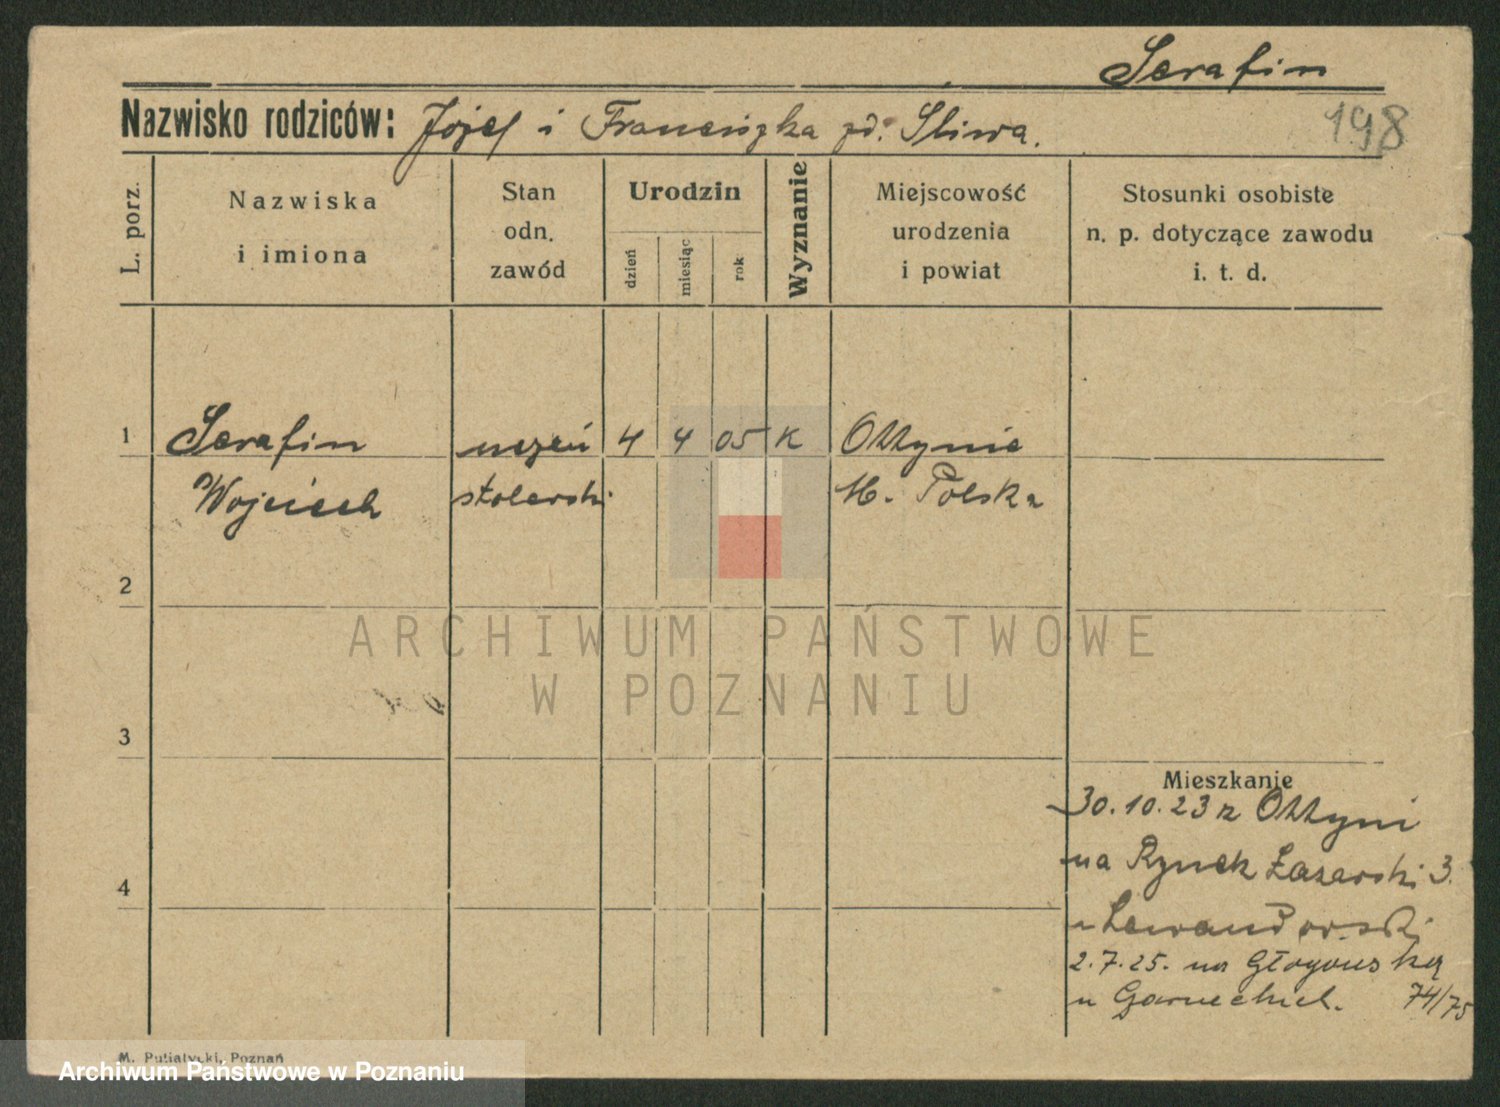 Serafin
Nazwisko rodziców: Józef i Franciszka zd. Śliwa.
198
L. porz.
Nazwiska
i imiona
Stan
odn.
zawód
Urodzin
dzień
miesiąc
rok
Wyznanie
Miejscowość
urodzenia
i powiat
Stosunki osobiste
n. p. dotyczące zawodu
i. t. d.
1 Serafin uczeń 4 4 05 K Ottynie
Wojciech stolarski M. Polska
2
ARCHIWUM PAŃSTWOWE
W POZNANIU
3
Mieszkanie
30.10.23 z Ottyni
na Rynek Łazarski 3.
4
u Lewandowski
2.7.25. na Głogowską
u 74/75
M. Putiatycki, Poznań
Archiwum Państwowe w Poznaniu